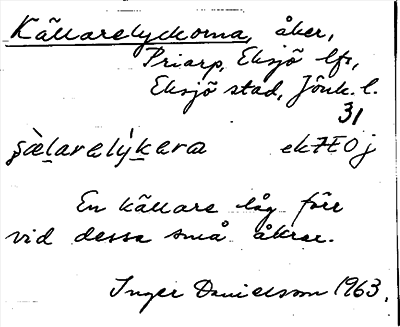 Källarelyckorna, åker,
Priarp, Eksjö lfs,
Eksjö stad, Jönk. l.
31
En källare låg förr
vid dessa små åkrar.
Inger Danielsson 1963.